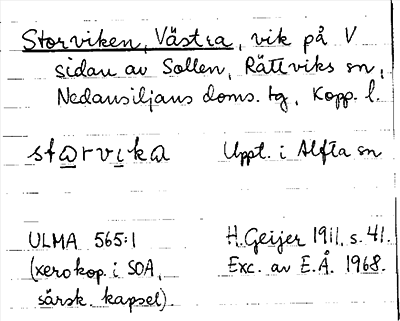 Storviken, Västra, vik på V
sidan av Sollen, Rättviks sn,
Nedansiljans doms. tg, Kopp. l.
starvika Uppt. i Alfta sn
ULMA 565:1 H. Geijer 1911, s. 41.
(xerokop. i SOA, Exc. av E.Å. 1968.
särsk. kapsel).